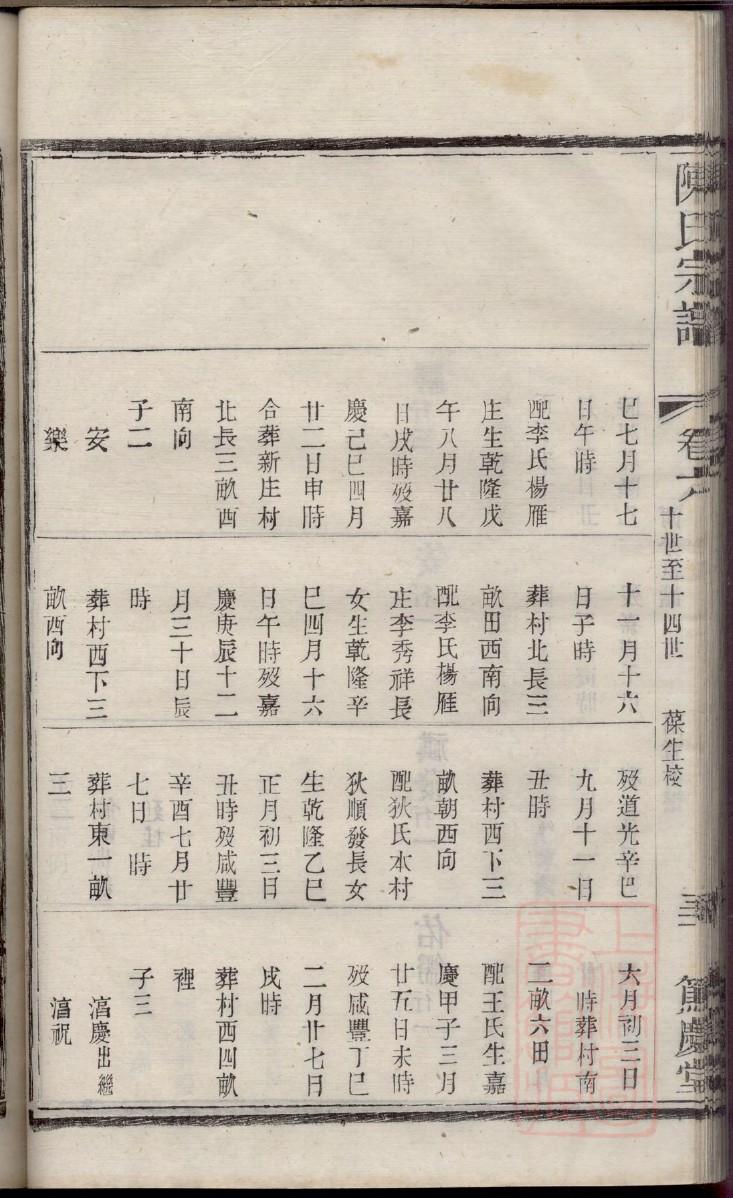 陳氏宗譜
卷六
十世至十四世
葆生校
篤慶堂
巳七月十七
日午時
配李氏楊雁
庄生乾隆戊
午八月廿八
日戌時歿嘉
慶己巳四月
廿二日申時
合葬新庄村
北長三畝西
南向
子二
安
樂
十一月十六
日子時
葬村北長三
畝田西南向
配李氏楊雁
庄李秀祥長
女生乾隆辛
巳四月十六
日午時歿嘉
慶庚辰十二
月三十日辰
時
葬村西下三
畝西向
歿道光辛巳
九月十一日
丑時
葬村西下三
畝朝西向
配狄氏本村
狄順發長女
生乾隆乙巳
正月初三日
丑時歿咸豐
辛酉七月廿
七日 時
葬村東一畝
三
六月初三日
時葬村南
二畝六田
配王氏生嘉
慶甲子三月
廿五日未時
歿咸豐丁巳
二月廿七日
戌時
葬村西四畝
裡
子三
滈慶出繼
滈祝